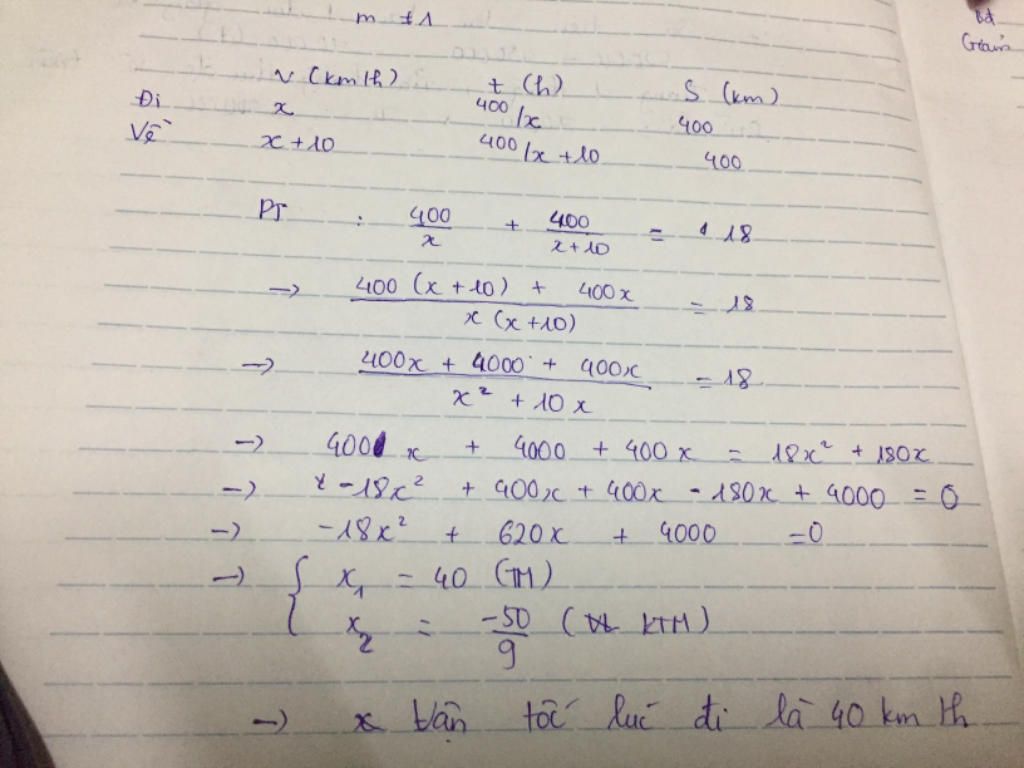 m ≠ 1
Bđ
Giải
v (km/h) t (h) S (km)
Đi x 400/x 400
Về x + 10 400/x + 10 400
PT : 400/x + 400/(x+10) = 18
→ (400 (x + 10) + 400x)/(x (x+10)) = 18
→ (400x + 4000 + 400x)/(x² + 10x) = 18
→ 400x + 4000 + 400x = 18x² + 180x
→ -18x² + 400x + 400x - 180x + 4000 = 0
→ -18x² + 620x + 4000 = 0
→ { x₁ = 40 (TM)
x₂ = -50/9 (KTM)
→ vận tốc lúc đi là 40 km/h